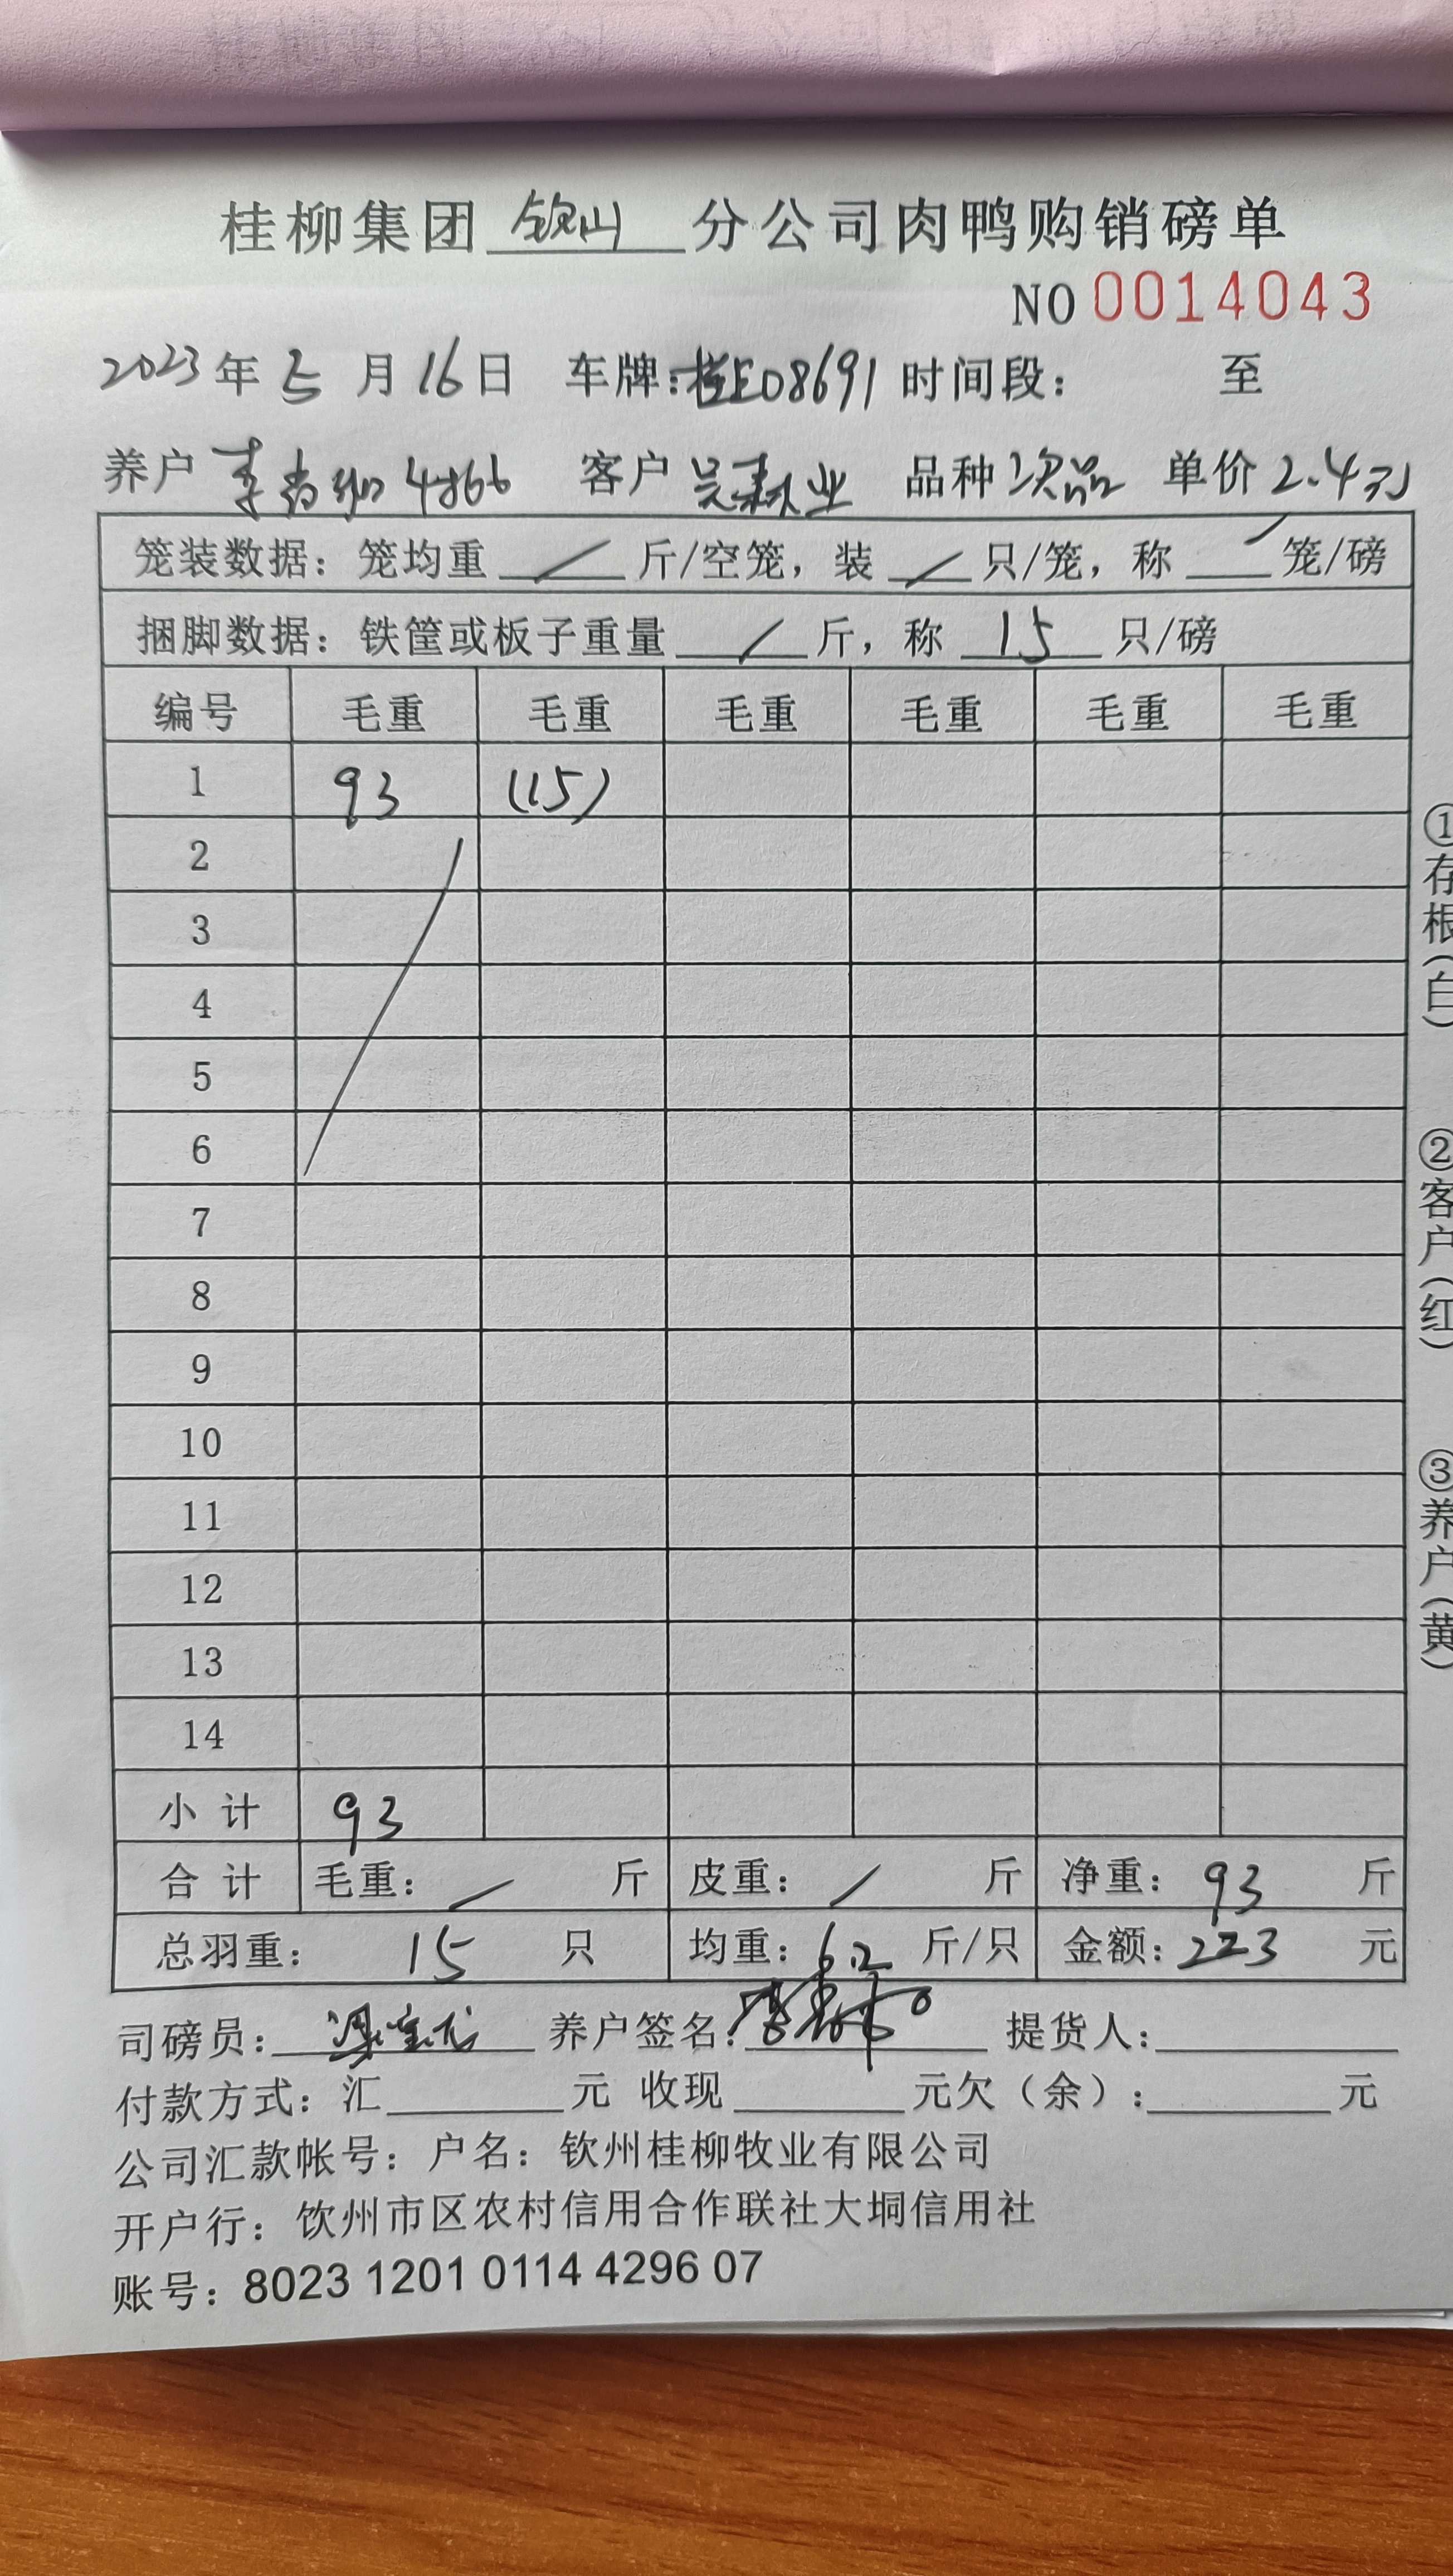 桂柳集团 钦山 分公司肉鸭购销磅单
NO 0014043
2023年5月16日 车牌:桂E08691 时间段: 至
养户 李 4866 客户 吴 业 品种 次品 单价 2.4元
笼装数据: 笼均重 / 斤/空笼, 装 / 只/笼, 称 / 笼/磅
捆脚数据: 铁筐或板子重量 / 斤, 称 15 只/磅
编号 毛重 毛重 毛重 毛重 毛重 毛重
1 93 (15)
2
3
4
5
6
7
8
9
10
11
12
13
14
小计 93
合计 毛重: / 斤 皮重: / 斤 净重: 93 斤
总羽重: 15 只 均重: 6.2 斤/只 金额: 223 元
司磅员: 养户签名: 提货人:
付款方式: 汇 元 收现 元欠(余): 元
公司汇款帐号: 户名: 钦州桂柳牧业有限公司
开户行: 饮州市区农村信用合作联社大垌信用社
账号: 8023 1201 0114 4296 07
①存根(白)
②客户(红)
③养户(黄)